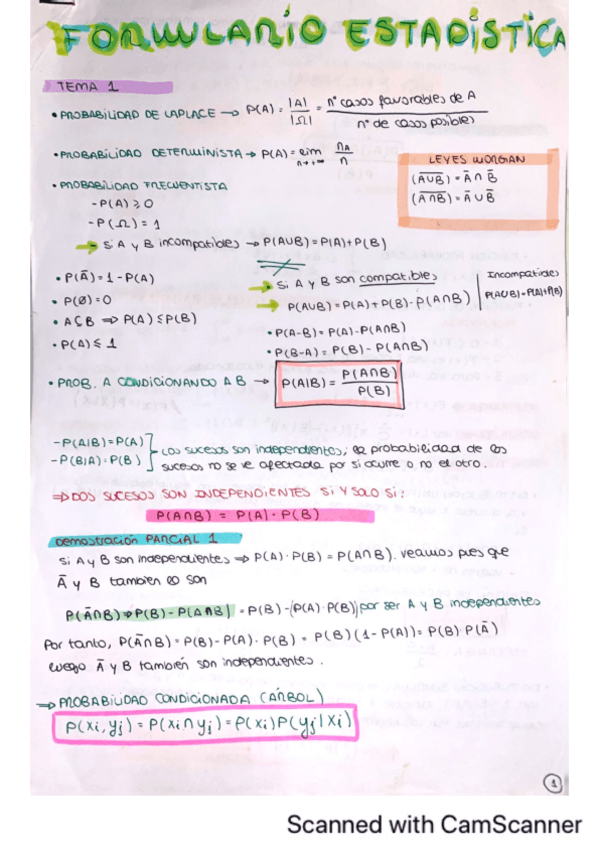 FORMULARIO ESTADISTICA
TEMA 1
• PROBABILIDAD DE LAPLACE → P(A) = |A| / |Ω| = nº casos favorables de A / nº de casos posibles
• PROBABILIDAD DETERMINISTA → P(A) = lim n→+∞ nA / n
LEYES MORGAN
(A̅U̅B̅) = A̅ ∩ B̅
(A̅∩̅B̅) = A̅ U B̅
• PROBABILIDAD FRECUENTISTA
- P(A) ≥ 0
- P(Ω) = 1
→ Si A y B incompatibles → P(AUB) = P(A) + P(B)
• P(A̅) = 1 - P(A)
• P(Ø) = 0
• A⊆B ⇒ P(A) ≤ P(B)
• P(A) ≤ 1
→ Si A y B son compatibles
→ P(AUB) = P(A) + P(B) - P(A∩B)
Incompatibles
P(AUB) = P(A)+P(B)
• P(A-B) = P(A) - P(A∩B)
• P(B-A) = P(B) - P(A∩B)
• PROB. A CONDICIONANDO A B → P(A|B) = P(A∩B) / P(B)
- P(A|B) = P(A)
- P(B|A) = P(B)
Los sucesos son independientes; la probabilidad de los
sucesos no se ve afectada por si ocurre o no el otro.
⇒ DOS SUCESOS SON INDEPENDIENTES SI Y SOLO SI:
P(A∩B) = P(A) · P(B)
Demostración PARCIAL 1
Si A y B son independientes ⇒ P(A) · P(B) = P(A∩B). veamos pues que
A̅ y B tambien lo son
P(A̅∩B) ⇒ P(B) - P(A∩B) = P(B) - (P(A) · P(B)) por ser A y B independientes
Por tanto, P(A̅∩B) = P(B) - P(A) · P(B) = P(B) (1 - P(A)) = P(B) · P(A̅)
luego A̅ y B también son independientes.
→ PROBABILIDAD CONDICIONADA (ÁRBOL)
P(xi, yj) = P(xi ∩ yj) = P(xi) P(yj | xi)
1
Scanned with CamScanner